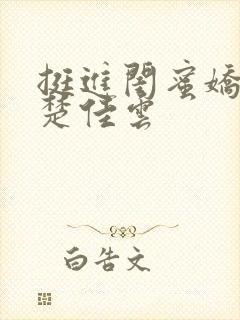 挺進閨蜜嬌
楚佳雲
白告文